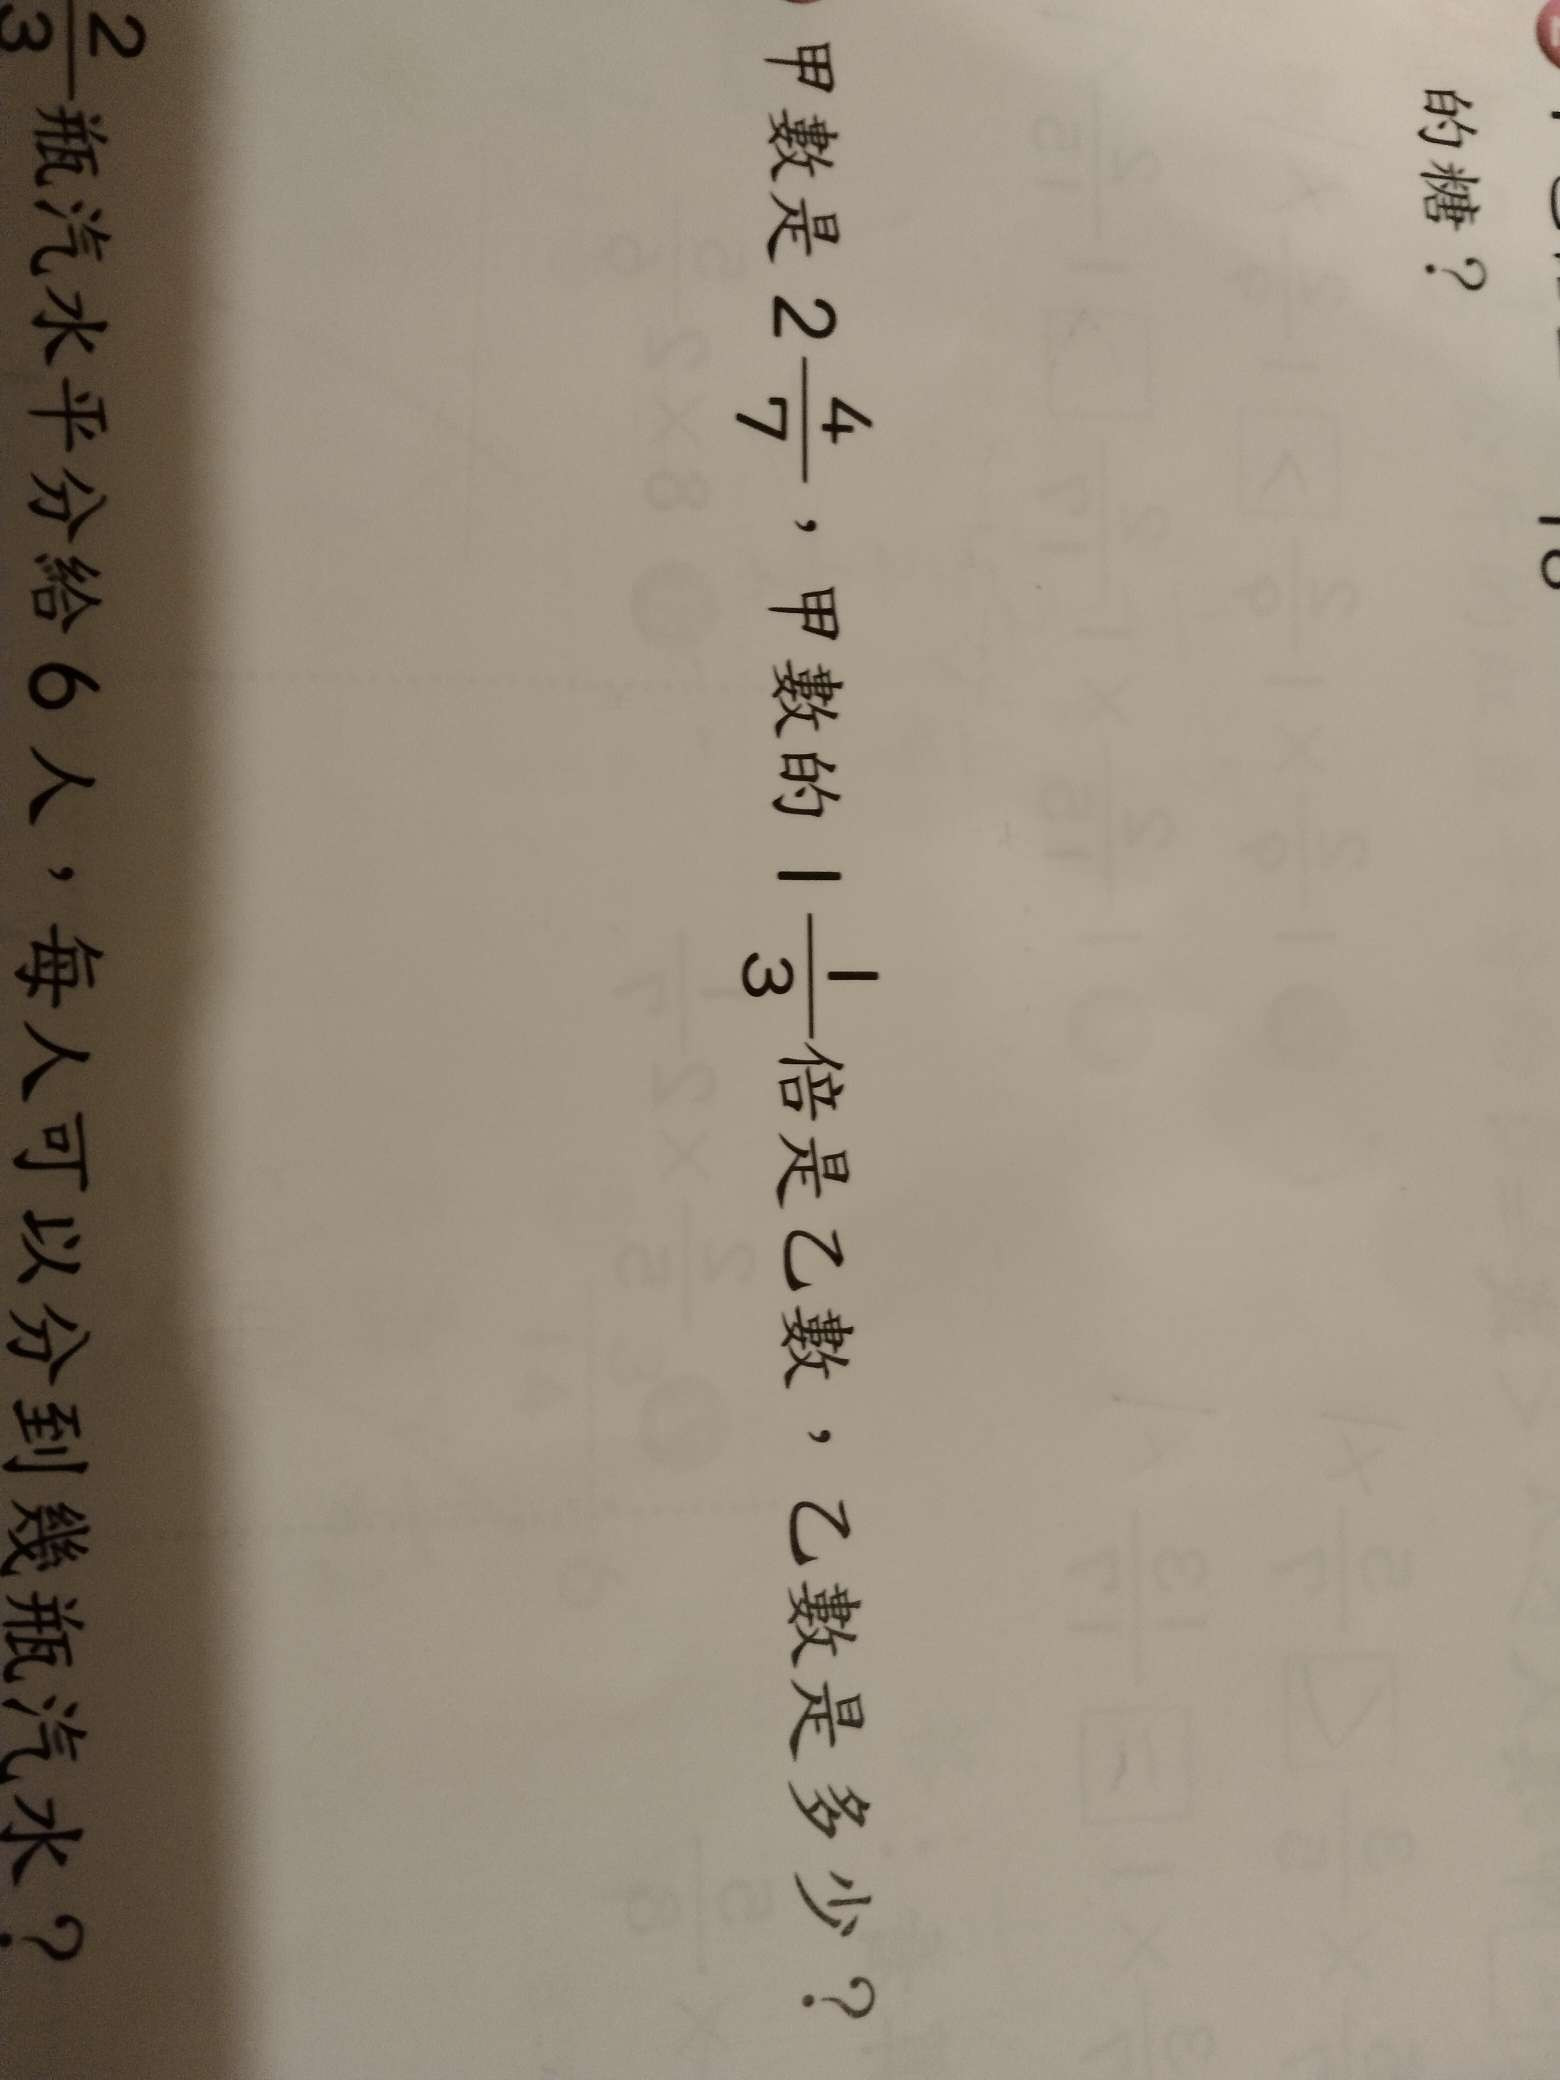 的糖？
甲數是 2 4/7，甲數的 1 1/3 倍是乙數，乙數是多少？
2/3 瓶汽水平分給 6 人，每人可以分到幾瓶汽水？